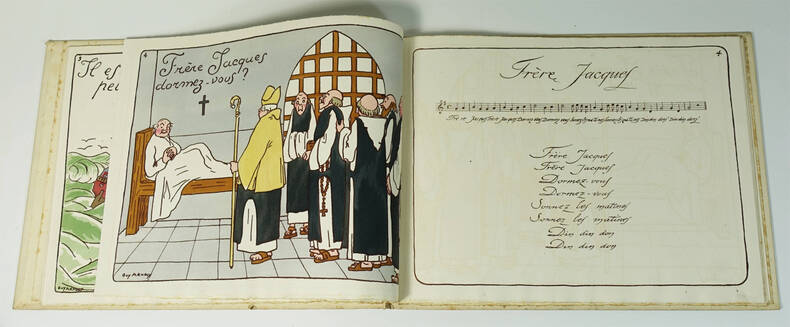 3
Il es
pe
4
Frère Jacques
dormez-vous?
4
Frère Jacques
Frère Jacques
Frère Jacques
Dormez-vous
Dormez-vous
Sonnez les matines
Sonnez les matines
Din din don
Din din don